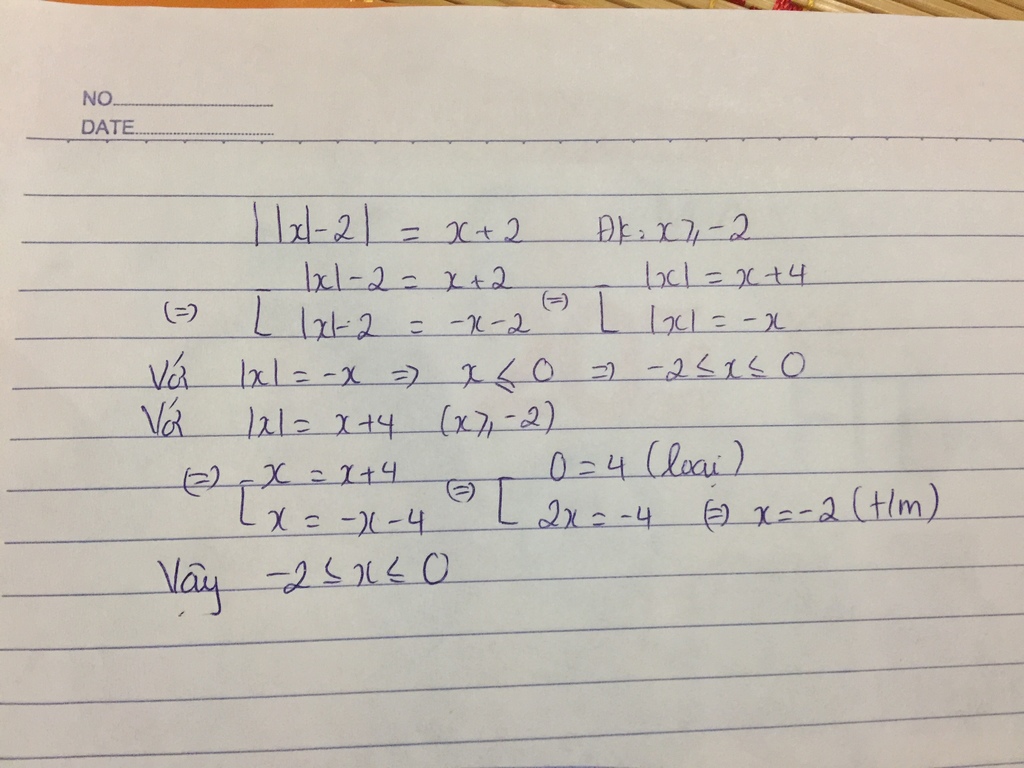 NO
DATE
||x|-2| = x+2 Đk: x ≥ -2
|x|-2 = x+2 |x| = x+4
(=) [ |x|-2 = -x-2 (=) [ |x| = -x
Với |x| = -x => x ≤ 0 => -2 ≤ x ≤ 0
Với |x| = x+4 (x ≥ -2)
(=) x = x+4 (=) 0 = 4 (loại)
[ x = -x-4 [ 2x = -4 (=) x = -2 (t/m)
Vậy -2 ≤ x ≤ 0